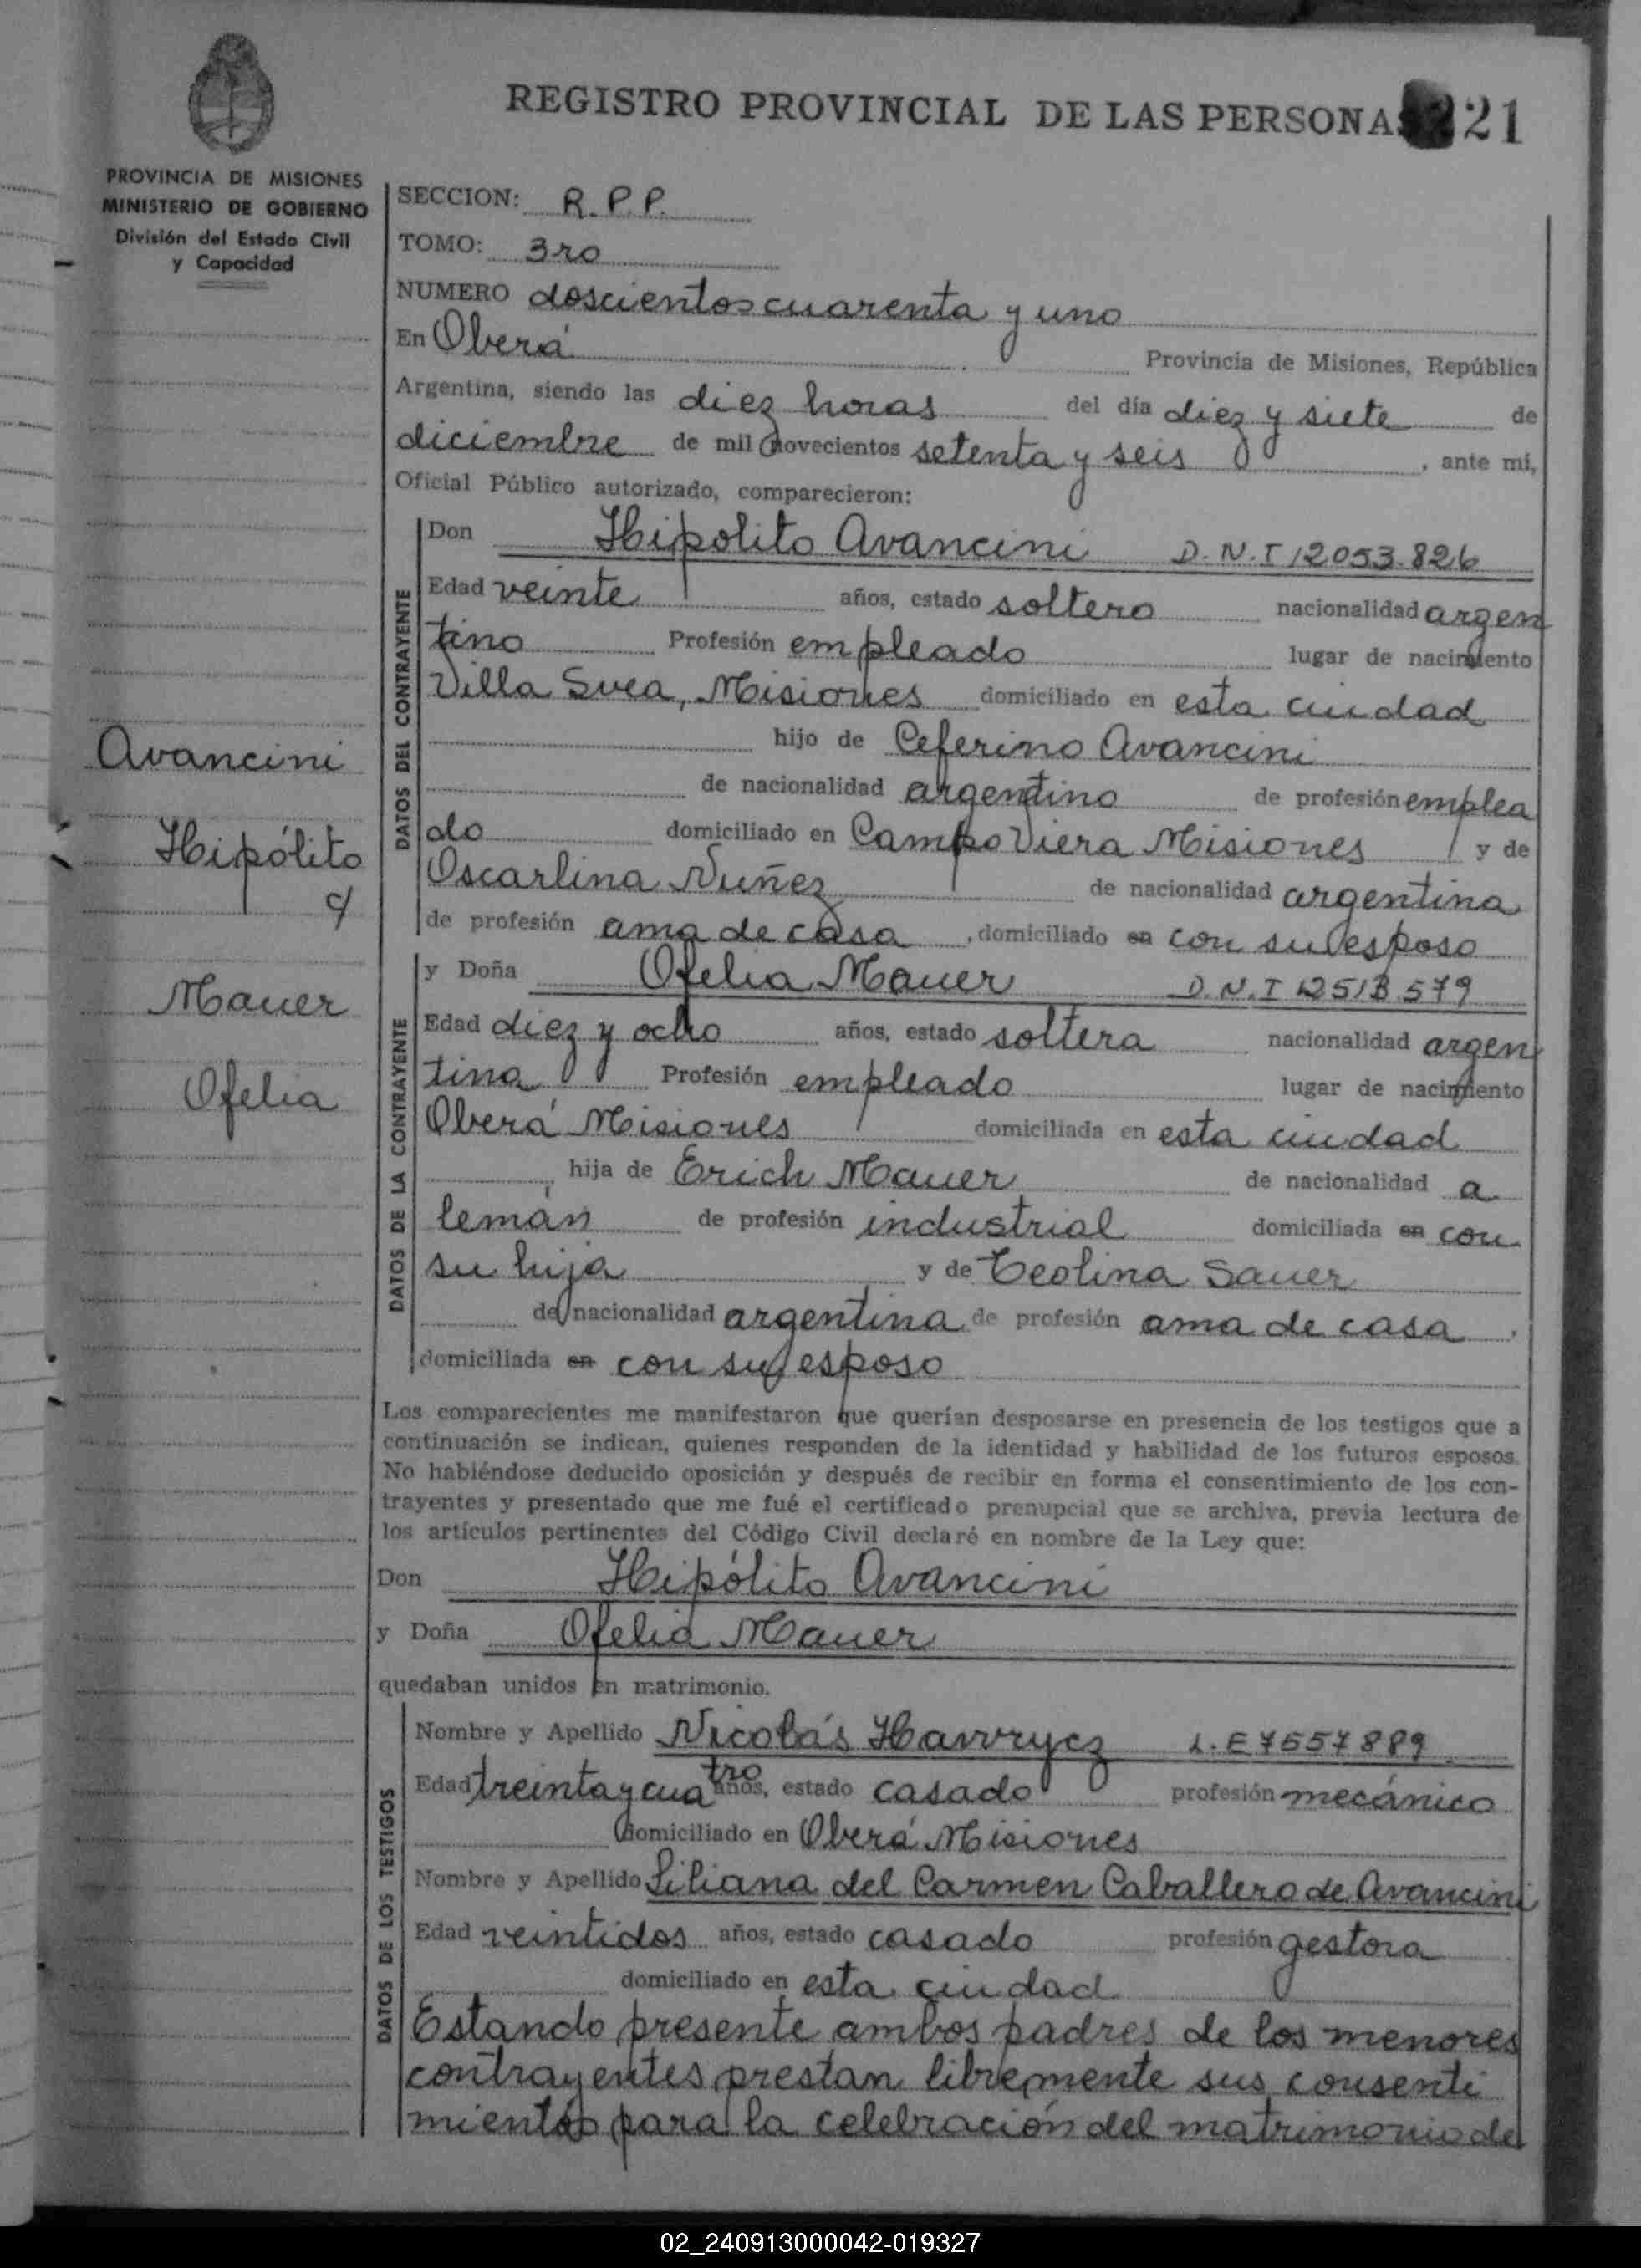 REGISTRO PROVINCIAL DE LAS PERSONAS
221
PROVINCIA DE MISIONES
MINISTERIO DE GOBIERNO
División del Estado Civil
y Capacidad
SECCION: R.P.P.
TOMO: 3ro
NUMERO doscientos cuarenta y uno
En Oberá Provincia de Misiones, República
Argentina, siendo las diez horas del día diez y siete de
diciembre de mil novecientos setenta y seis, ante mí,
Oficial Público autorizado, comparecieron:
DATOS DEL CONTRAYENTE
Don Hipolito Avancini D.N.I 12053.826
Edad veinte años, estado soltero nacionalidad argen
tino Profesión empleado lugar de nacimiento
Villa Svea, Misiones domiciliado en esta ciudad
hijo de Ceferino Avancini
de nacionalidad argentino de profesión emplea
do domiciliado en Campo Viera Misiones y de
Oscarlina Nuñez de nacionalidad argentina
de profesión ama de casa, domiciliado en con su esposo
Avancini
Hipólito
c/
Mauer
Ofelia
DATOS DE LA CONTRAYENTE
y Doña Ofelia Mauer D.N.I 12513.579
Edad diez y ocho años, estado soltera nacionalidad argen
tina Profesión empleado lugar de nacimiento
Oberá Misiones domiciliada en esta ciudad
hija de Erich Mauer de nacionalidad a
lemán de profesión industrial domiciliada en con
su hija y de Teolina Sauer
de nacionalidad argentina de profesión ama de casa,
domiciliada en con su esposo
Los comparecientes me manifestaron que querían desposarse en presencia de los testigos que a
continuación se indican, quienes responden de la identidad y habilidad de los futuros esposos.
No habiéndose deducido oposición y después de recibir en forma el consentimiento de los con-
trayentes y presentado que me fué el certificado prenupcial que se archiva, previa lectura de
los artículos pertinentes del Código Civil declaré en nombre de la Ley que:
Don Hipólito Avancini
y Doña Ofelia Mauer
quedaban unidos en matrimonio.
DATOS DE LOS TESTIGOS
Nombre y Apellido Nicolás Hawrycz L.E 7557889
Edad treinta y cuatro años, estado casado profesión mecánico
domiciliado en Oberá Misiones
Nombre y Apellido Liliana del Carmen Caballero de Avancini
Edad veintidos años, estado casado profesión gestora
domiciliado en esta ciudad
Estando presente ambos padres de los menores
contrayentes prestan libremente sus consenti
mientos para la celebración del matrimonio de
02_240913000042-019327